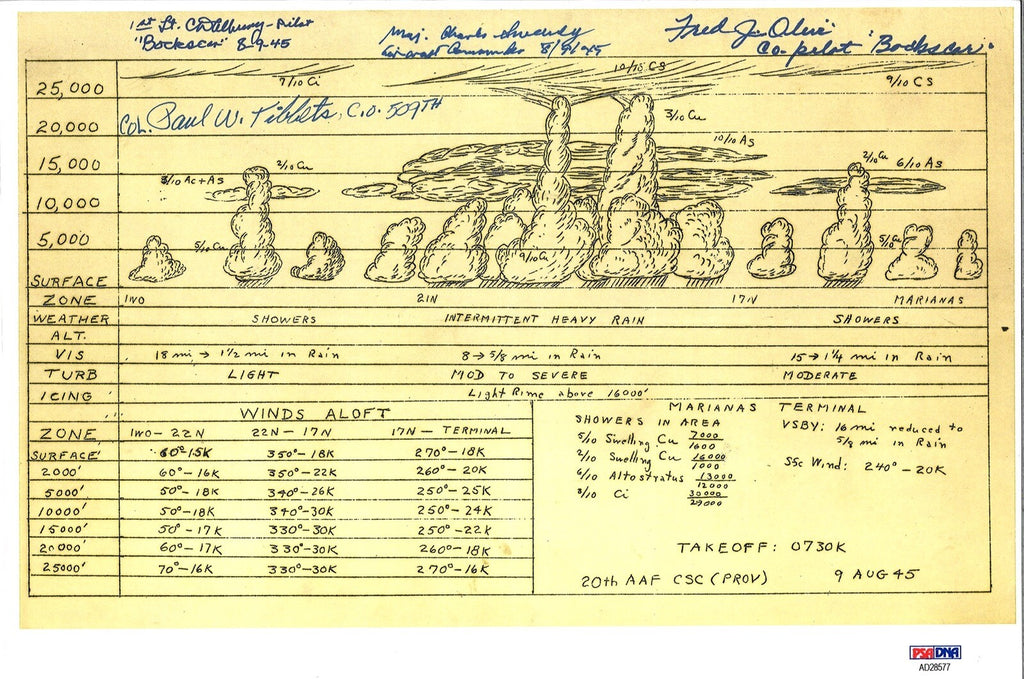 1st Lt. C D Albury - Pilot
"Bockscar" 8-9-45
Maj. Charles Sweeney
Aircraft Commander 8/9/45
Fred J. Olivi
Co-pilot "Bockscar"
25,000
7/10 Ci
10/10 CS
9/10 CS
COL. Paul W. Tibbets, C.O. 509TH
20,000
3/10 Cu
10/10 As
15,000
2/10 Cu
2/10 Cu
6/10 As
3/10 Ac+As
10,000
5,000
5/10 Cu
9/10 Cu
5/10 Cu
SURFACE
ZONE IWO 21N 17N MARIANAS
WEATHER SHOWERS INTERMITTENT HEAVY RAIN SHOWERS
ALT.
VIS 18 mi → 1 1/2 mi in Rain 8 → 5/8 mi in Rain 15 → 1 1/4 mi in Rain
TURB LIGHT MOD TO SEVERE MODERATE
ICING Light Rime above 16000'
WINDS ALOFT
ZONE IWO-22N 22N-17N 17N-TERMINAL
SURFACE 60°-15K 350°-18K 270°-18K
2000' 60°-16K 350°-22K 260°-20K
5000' 50°-18K 340°-26K 250°-25K
10000' 50°-18K 340°-30K 250°-24K
15000' 50°-17K 330°-30K 250°-22K
20000' 60°-17K 330°-30K 260°-18K
25000' 70°-16K 330°-30K 270°-16K
MARIANAS TERMINAL
SHOWERS IN AREA
5/10 Swelling Cu 7000/1600
2/10 Swelling Cu 16000/1000
6/10 Altostratus 13000/12000
Ci 30000/29000
VSBY: 16 mi reduced to
5/8 mi in Rain
Sfc Wind: 240°-20K
TAKEOFF: 0730K
20th AAF CSC (PROV) 9 AUG 45
PSA DNA
AD28577